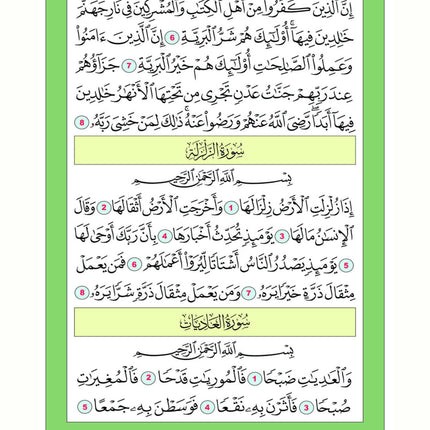 إِنَّ ٱلَّذِينَ كَفَرُوا۟ مِنْ أَهْلِ ٱلْكِتَٰبِ وَٱلْمُشْرِكِينَ فِي نَارِ جَهَنَّمَ
خَٰلِدِينَ فِيهَآ أُو۟لَٰٓئِكَ هُمْ شَرُّ ٱلْبَرِيَّةِ 6 إِنَّ ٱلَّذِينَ ءَامَنُوا۟
وَعَمِلُوا۟ ٱلصَّٰلِحَٰتِ أُو۟لَٰٓئِكَ هُمْ خَيْرُ ٱلْبَرِيَّةِ 7 جَزَآؤُهُمْ
عِندَ رَبِّهِمْ جَنَّٰتُ عَدْنٍ تَجْرِي مِن تَحْتِهَا ٱلْأَنْهَٰرُ خَٰلِدِينَ
فِيهَآ أَبَدًا رَّضِيَ ٱللَّهُ عَنْهُمْ وَرَضُوا۟ عَنْهُ ذَٰلِكَ لِمَنْ خَشِيَ رَبَّهُۥ 8
سُورَةُ الزَّلْزَلَةِ
بِسْمِ ٱللَّهِ ٱلرَّحْمَٰنِ ٱلرَّحِيمِ
إِذَا زُلْزِلَتِ ٱلْأَرْضُ زِلْزَالَهَا 1 وَأَخْرَجَتِ ٱلْأَرْضُ أَثْقَالَهَا 2 وَقَالَ
ٱلْإِنسَٰنُ مَا لَهَا 3 يَوْمَئِذٍ تُحَدِّثُ أَخْبَارَهَا 4 بِأَنَّ رَبَّكَ أَوْحَىٰ لَهَا
5 يَوْمَئِذٍ يَصْدُرُ ٱلنَّاسُ أَشْتَاتًا لِّيُرَوْا۟ أَعْمَٰلَهُمْ 6 فَمَن يَعْمَلْ
مِثْقَالَ ذَرَّةٍ خَيْرًا يَرَهُۥ 7 وَمَن يَعْمَلْ مِثْقَالَ ذَرَّةٍ شَرًّا يَرَهُۥ 8
سُورَةُ العَادِيَاتِ
بِسْمِ ٱللَّهِ ٱلرَّحْمَٰنِ ٱلرَّحِيمِ
وَٱلْعَٰدِيَٰتِ ضَبْحًا 1 فَٱلْمُورِيَٰتِ قَدْحًا 2 فَٱلْمُغِيرَٰتِ
صُبْحًا 3 فَأَثَرْنَ بِهِۦ نَقْعًا 4 فَوَسَطْنَ بِهِۦ جَمْعًا 5